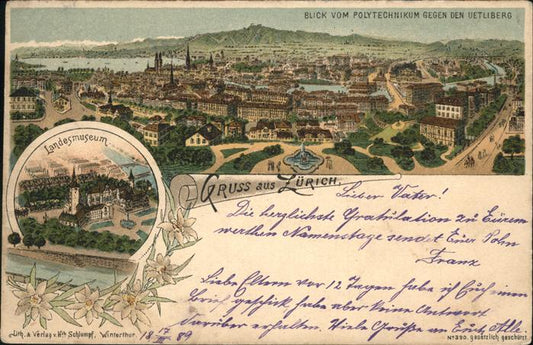 BLICK VOM POLYTECHNIKUM GEGEN DEN UETLIBERG
Landesmuseum
GRUSS AUS ZÜRICH.
Lieber Vater!
Die herzlichste Gratulation zu Eürem
werthen Namenstage sendet Eüer Sohn
Franz
Liebe Eltern vor 12 Tagen habe ich Euch einen
Brief geschickt habe aber keine Antwort
darüber erhalten. Viele Grüße an Euch Alle.
Lith. & Verlag v. Hch Schlumpf, Winterthur.
18 17 89
No 390. gesetzlich geschützt.